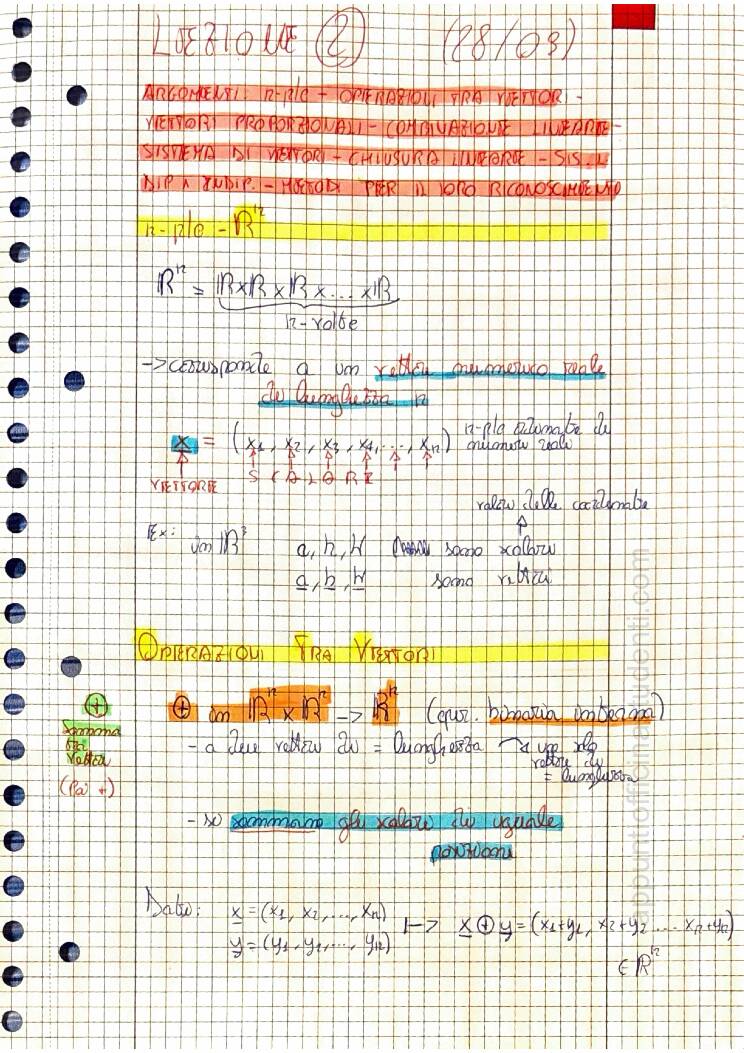 LEZIONE 2 (28/09)
ARGOMENTI: n-ple - OPERAZIONI TRA VETTORI -
VETTORI PROPORZIONALI - COMBINAZIONE LINEARE -
SISTEMA DI VETTORI - CHIUSURA LINEARE - SIS. L
DIP A INDIP. - METODI PER IL LORO RICONOSCIMENTO
n-ple - ℝⁿ
ℝⁿ = ℝ×ℝ×ℝ×...×ℝ
n-volte
-> corrisponde a un vettore numerico reale
di lunghezza n
x = (x1, x2, x3, x4, ..., xn) n-pla ordinata di
numeri reali
VETTORE SCALARI
valori delle coordinate
Ex: in ℝ³ a, h, w sono scalari
a, h, w sono vettori
OPERAZIONI TRA VETTORI
⊕ in ℝⁿ × ℝⁿ -> ℝⁿ (oper. binaria interna)
⊕
somma
tra
vettori
(Pai +)
- a due vettori di = lunghezza un solo
vettore di
= lunghezza
- si sommano gli scalari di uguale
posizione
Dati: x = (x1, x2, ..., xn)
y = (y1, y2, ..., yn) |-> x ⊕ y = (x1+y1, x2+y2 .... xn+yn)
∈ ℝⁿ
appuntofficinastudenti.com